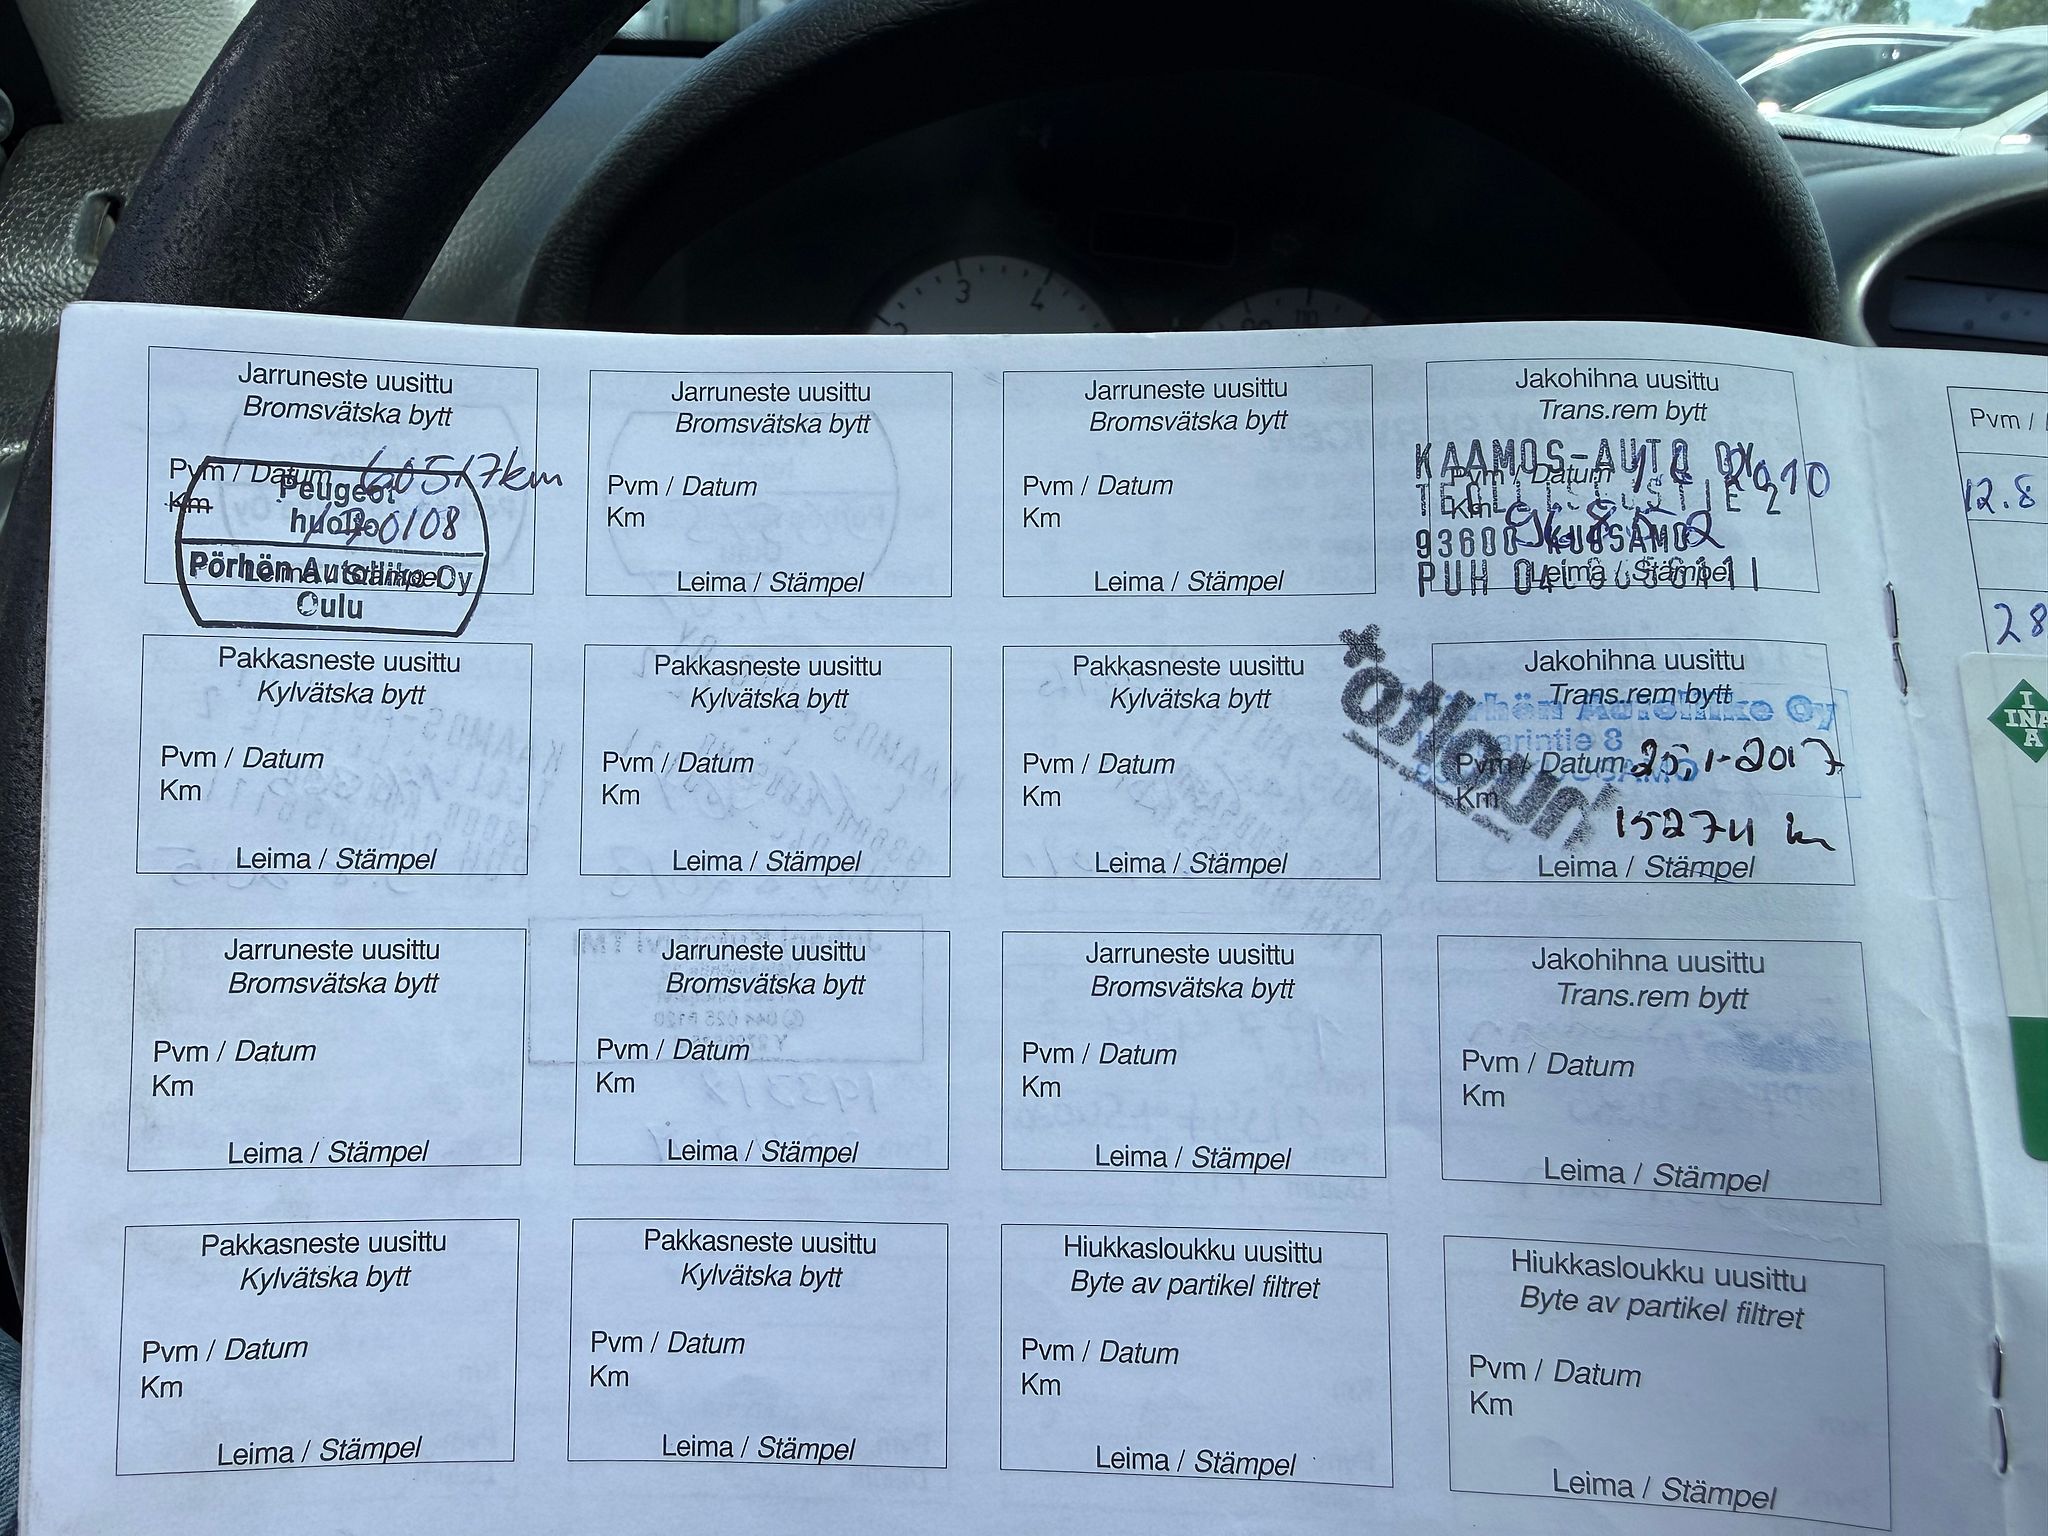 3
4
Jarruneste uusittu
Bromsvätska bytt
Pvm / Datum 60517km
Km
Peugeot
huolto
0108
Pörhön Autoliike Oy
Leima / Stämpel
Oulu
Jarruneste uusittu
Bromsvätska bytt
Pvm / Datum
Km
Leima / Stämpel
Jarruneste uusittu
Bromsvätska bytt
Pvm / Datum
Km
Leima / Stämpel
Jakohihna uusittu
Trans.rem bytt
KAAMOS-AUTO OY
Pvm / Datum 2010
Km
93600 KUUSAMO
PUH
Leima / Stämpel
Pvm /
12.8
28
Pakkasneste uusittu
Kylvätska bytt
Pvm / Datum
Km
Leima / Stämpel
Pakkasneste uusittu
Kylvätska bytt
Pvm / Datum
Km
Leima / Stämpel
Pakkasneste uusittu
Kylvätska bytt
Pvm / Datum
Km
Leima / Stämpel
Jakohihna uusittu
Trans.rem bytt
Autoliike Oy
8
Pvm / Datum 25.1-2017
Km
152711 km
Leima / Stämpel
INA
Jarruneste uusittu
Bromsvätska bytt
Pvm / Datum
Km
Leima / Stämpel
Jarruneste uusittu
Bromsvätska bytt
Pvm / Datum
Km
Leima / Stämpel
Jarruneste uusittu
Bromsvätska bytt
Pvm / Datum
Km
Leima / Stämpel
Jakohihna uusittu
Trans.rem bytt
Pvm / Datum
Km
Leima / Stämpel
Pakkasneste uusittu
Kylvätska bytt
Pvm / Datum
Km
Leima / Stämpel
Pakkasneste uusittu
Kylvätska bytt
Pvm / Datum
Km
Leima / Stämpel
Hiukkasloukku uusittu
Byte av partikel filtret
Pvm / Datum
Km
Leima / Stämpel
Hiukkasloukku uusittu
Byte av partikel filtret
Pvm / Datum
Km
Leima / Stämpel